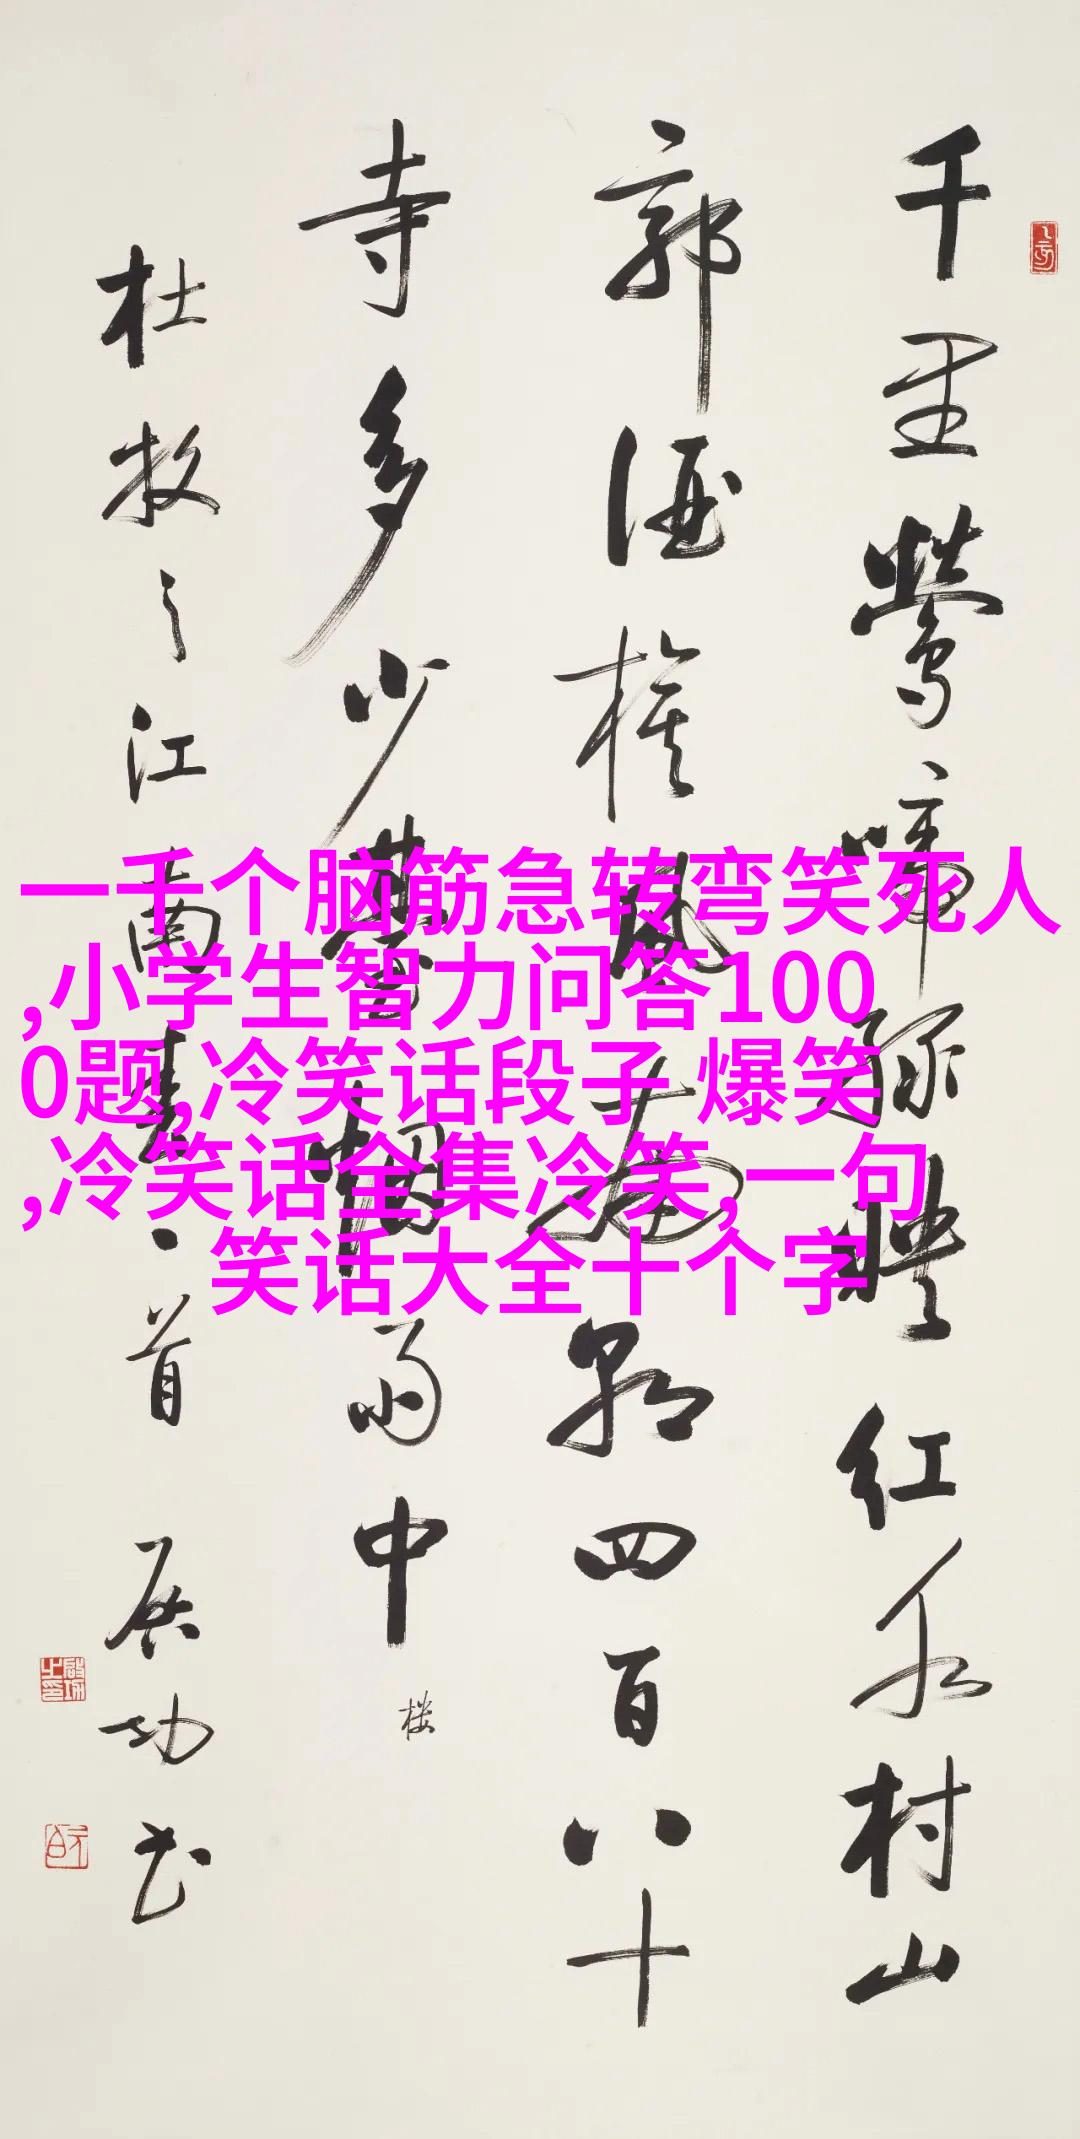 千里鶯啼緑映红水村山
郭酒旗風南朝四百八十
寺多少臺烟雨中
楼
杜牧之江南春一首 启功书
一千个脑筋急转弯笑死人
,小学生智力问答100
0题,冷笑话段子 爆笑
,冷笑话全集冷笑,一句
笑话大全十个字